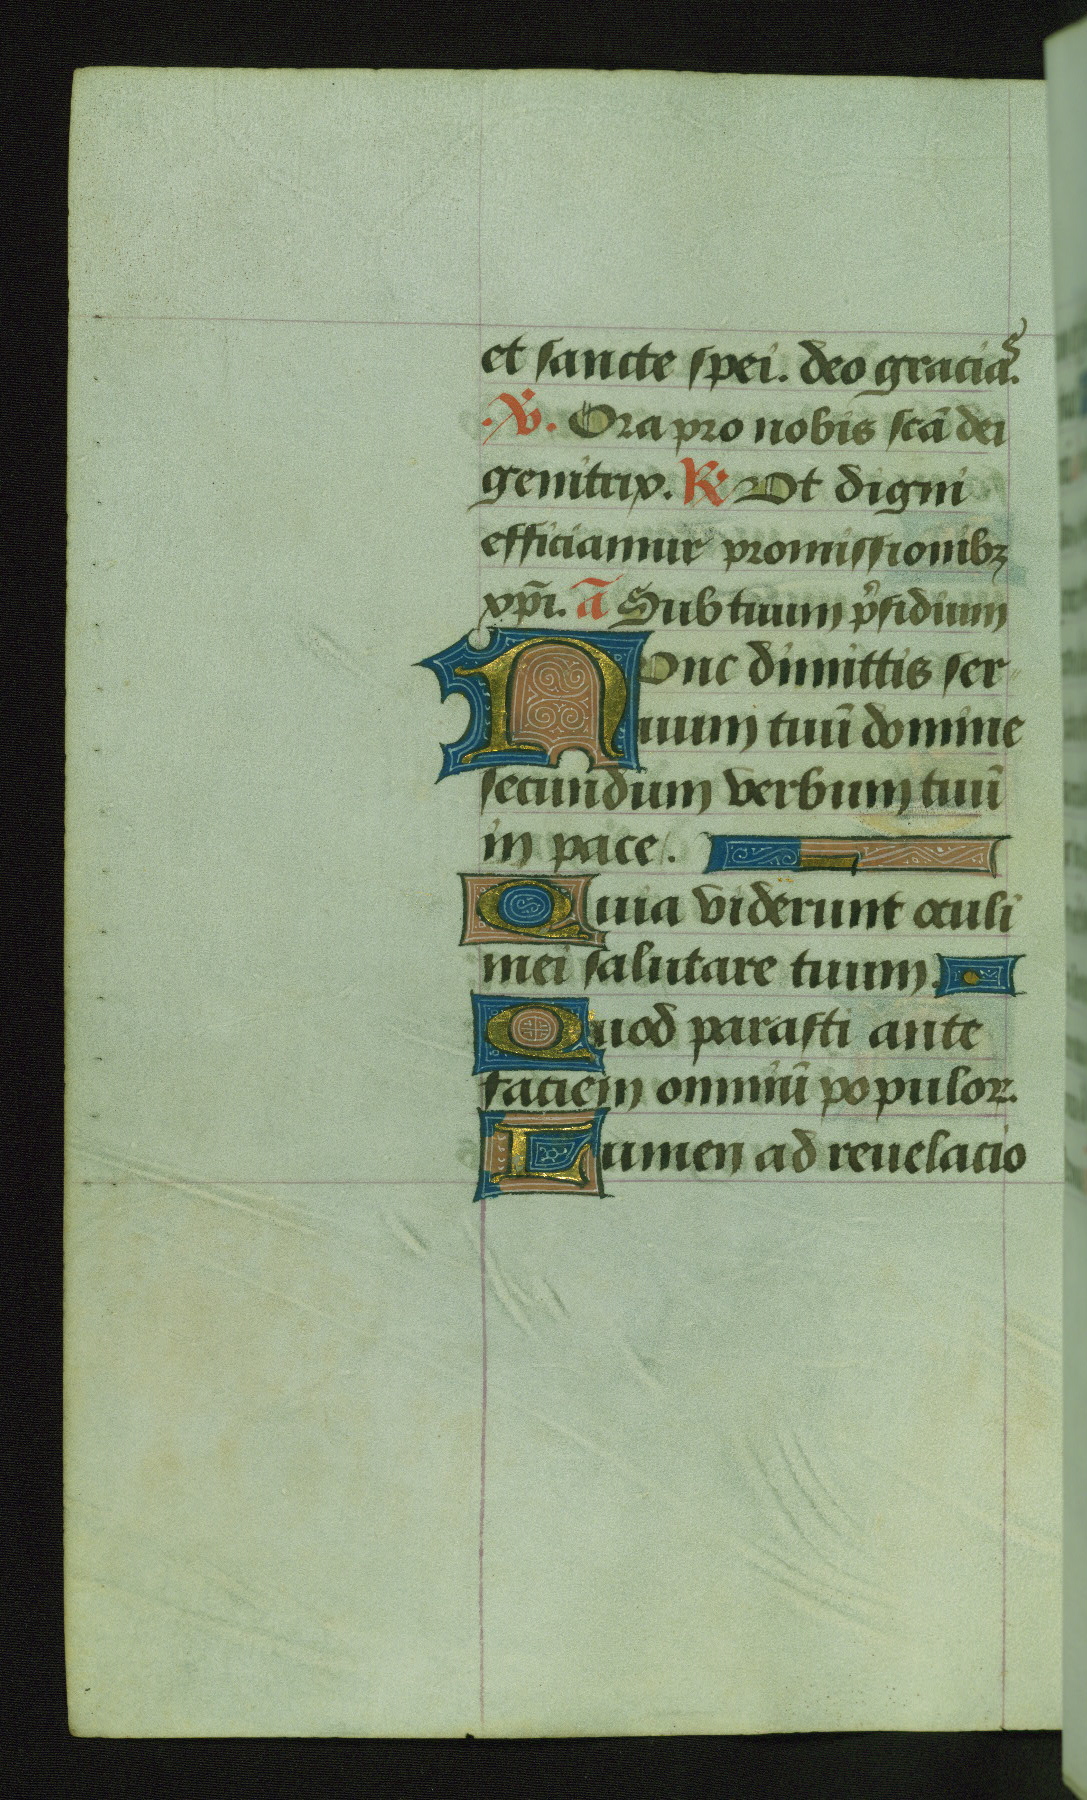 et sancte spei. deo gracias.
.℣. Ora pro nobis scā dei
genitrix. ℟ Vt digni
efficiamur promissionibꝫ
xp̄i. ā Sub tuum p̄sidium
NVnc dimittis ser
uum tuū domine
secundum verbum tuū
in pace.
Quia viderunt oculi
mei salutare tuum.
Quod parasti ante
faciem omniū populor.
Lumen ad reuelacio